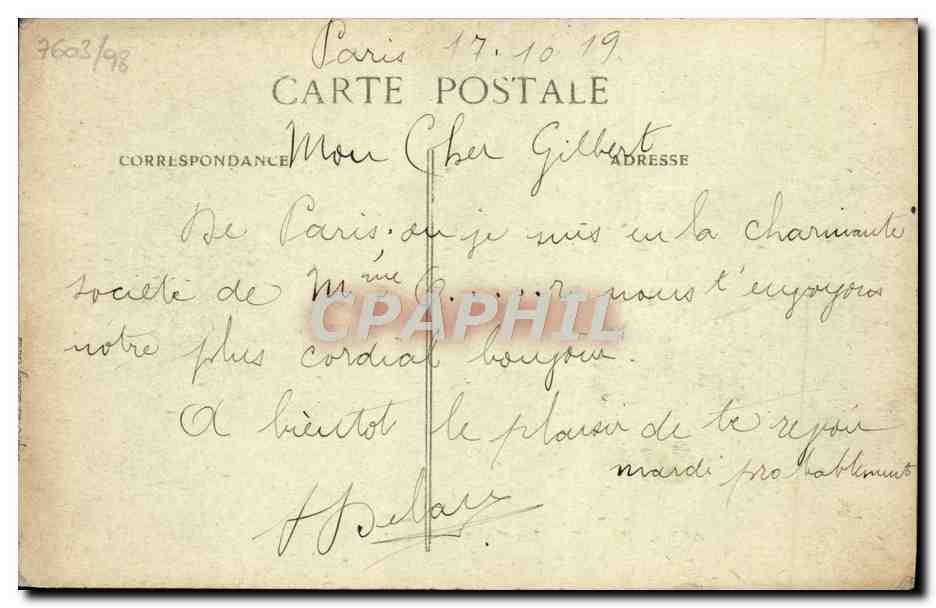 7603/98
Paris 17.10 19.
CARTE POSTALE
CORRESPONDANCE
ADRESSE
Mon Cher Gilbert
De Paris. ou je suis en la charmante
société de Mme G.....r, nous t'envoyons
notre plus cordial bonjour.
A bientot le plaisir de te revoir
mardi probablement
CPAPHIL